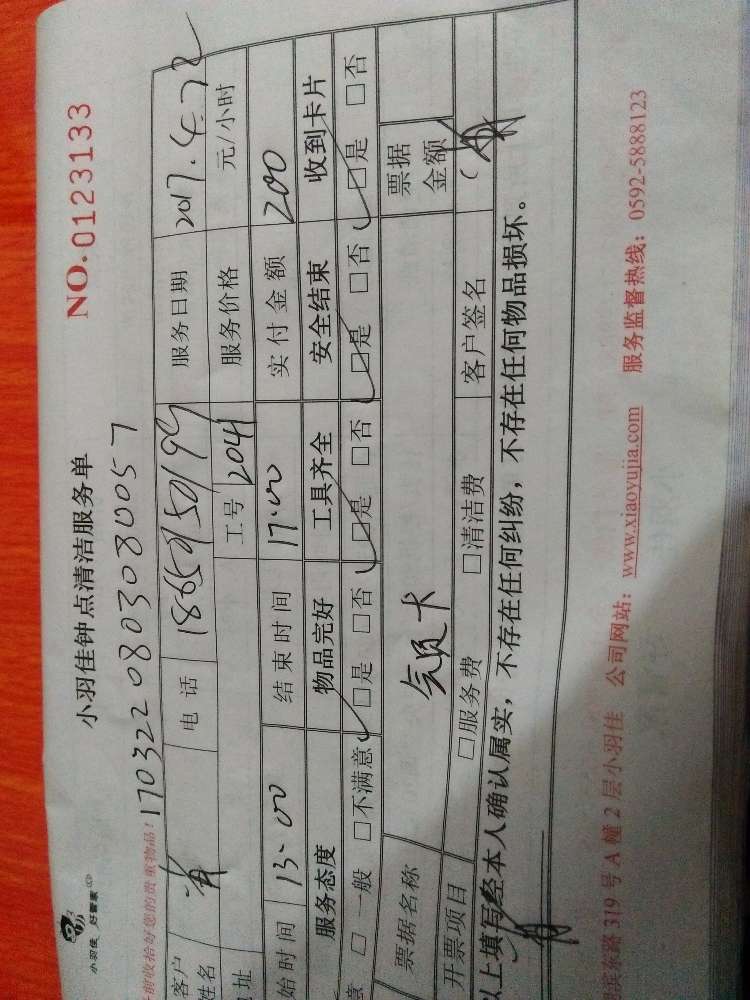 小羽佳 好管家
小羽佳钟点清洁服务单
NO.0123133
前收拾好您的贵重物品! 1703220803080057
客户 姓名 电话 服务日期
址 工号 2041 服务价格 元/小时
始时间 13:00 结束时间 17:00 实付金额 200
服务态度 物品完好 工具齐全 安全结束 收到卡片
意 □一般 □不满意 □是 □否 □是 □否 □是 □否 □是 □否
票据名称 会员卡 票据金额
开票项目 □服务费 □清洁费 客户签名
以上填写经本人确认属实,不存在任何纠纷,不存在任何物品损坏。
滨东路 319 号 A 幢 2 层小羽佳 公司网站:www.xiaoyujia.com 服务监督热线:0592-5888123